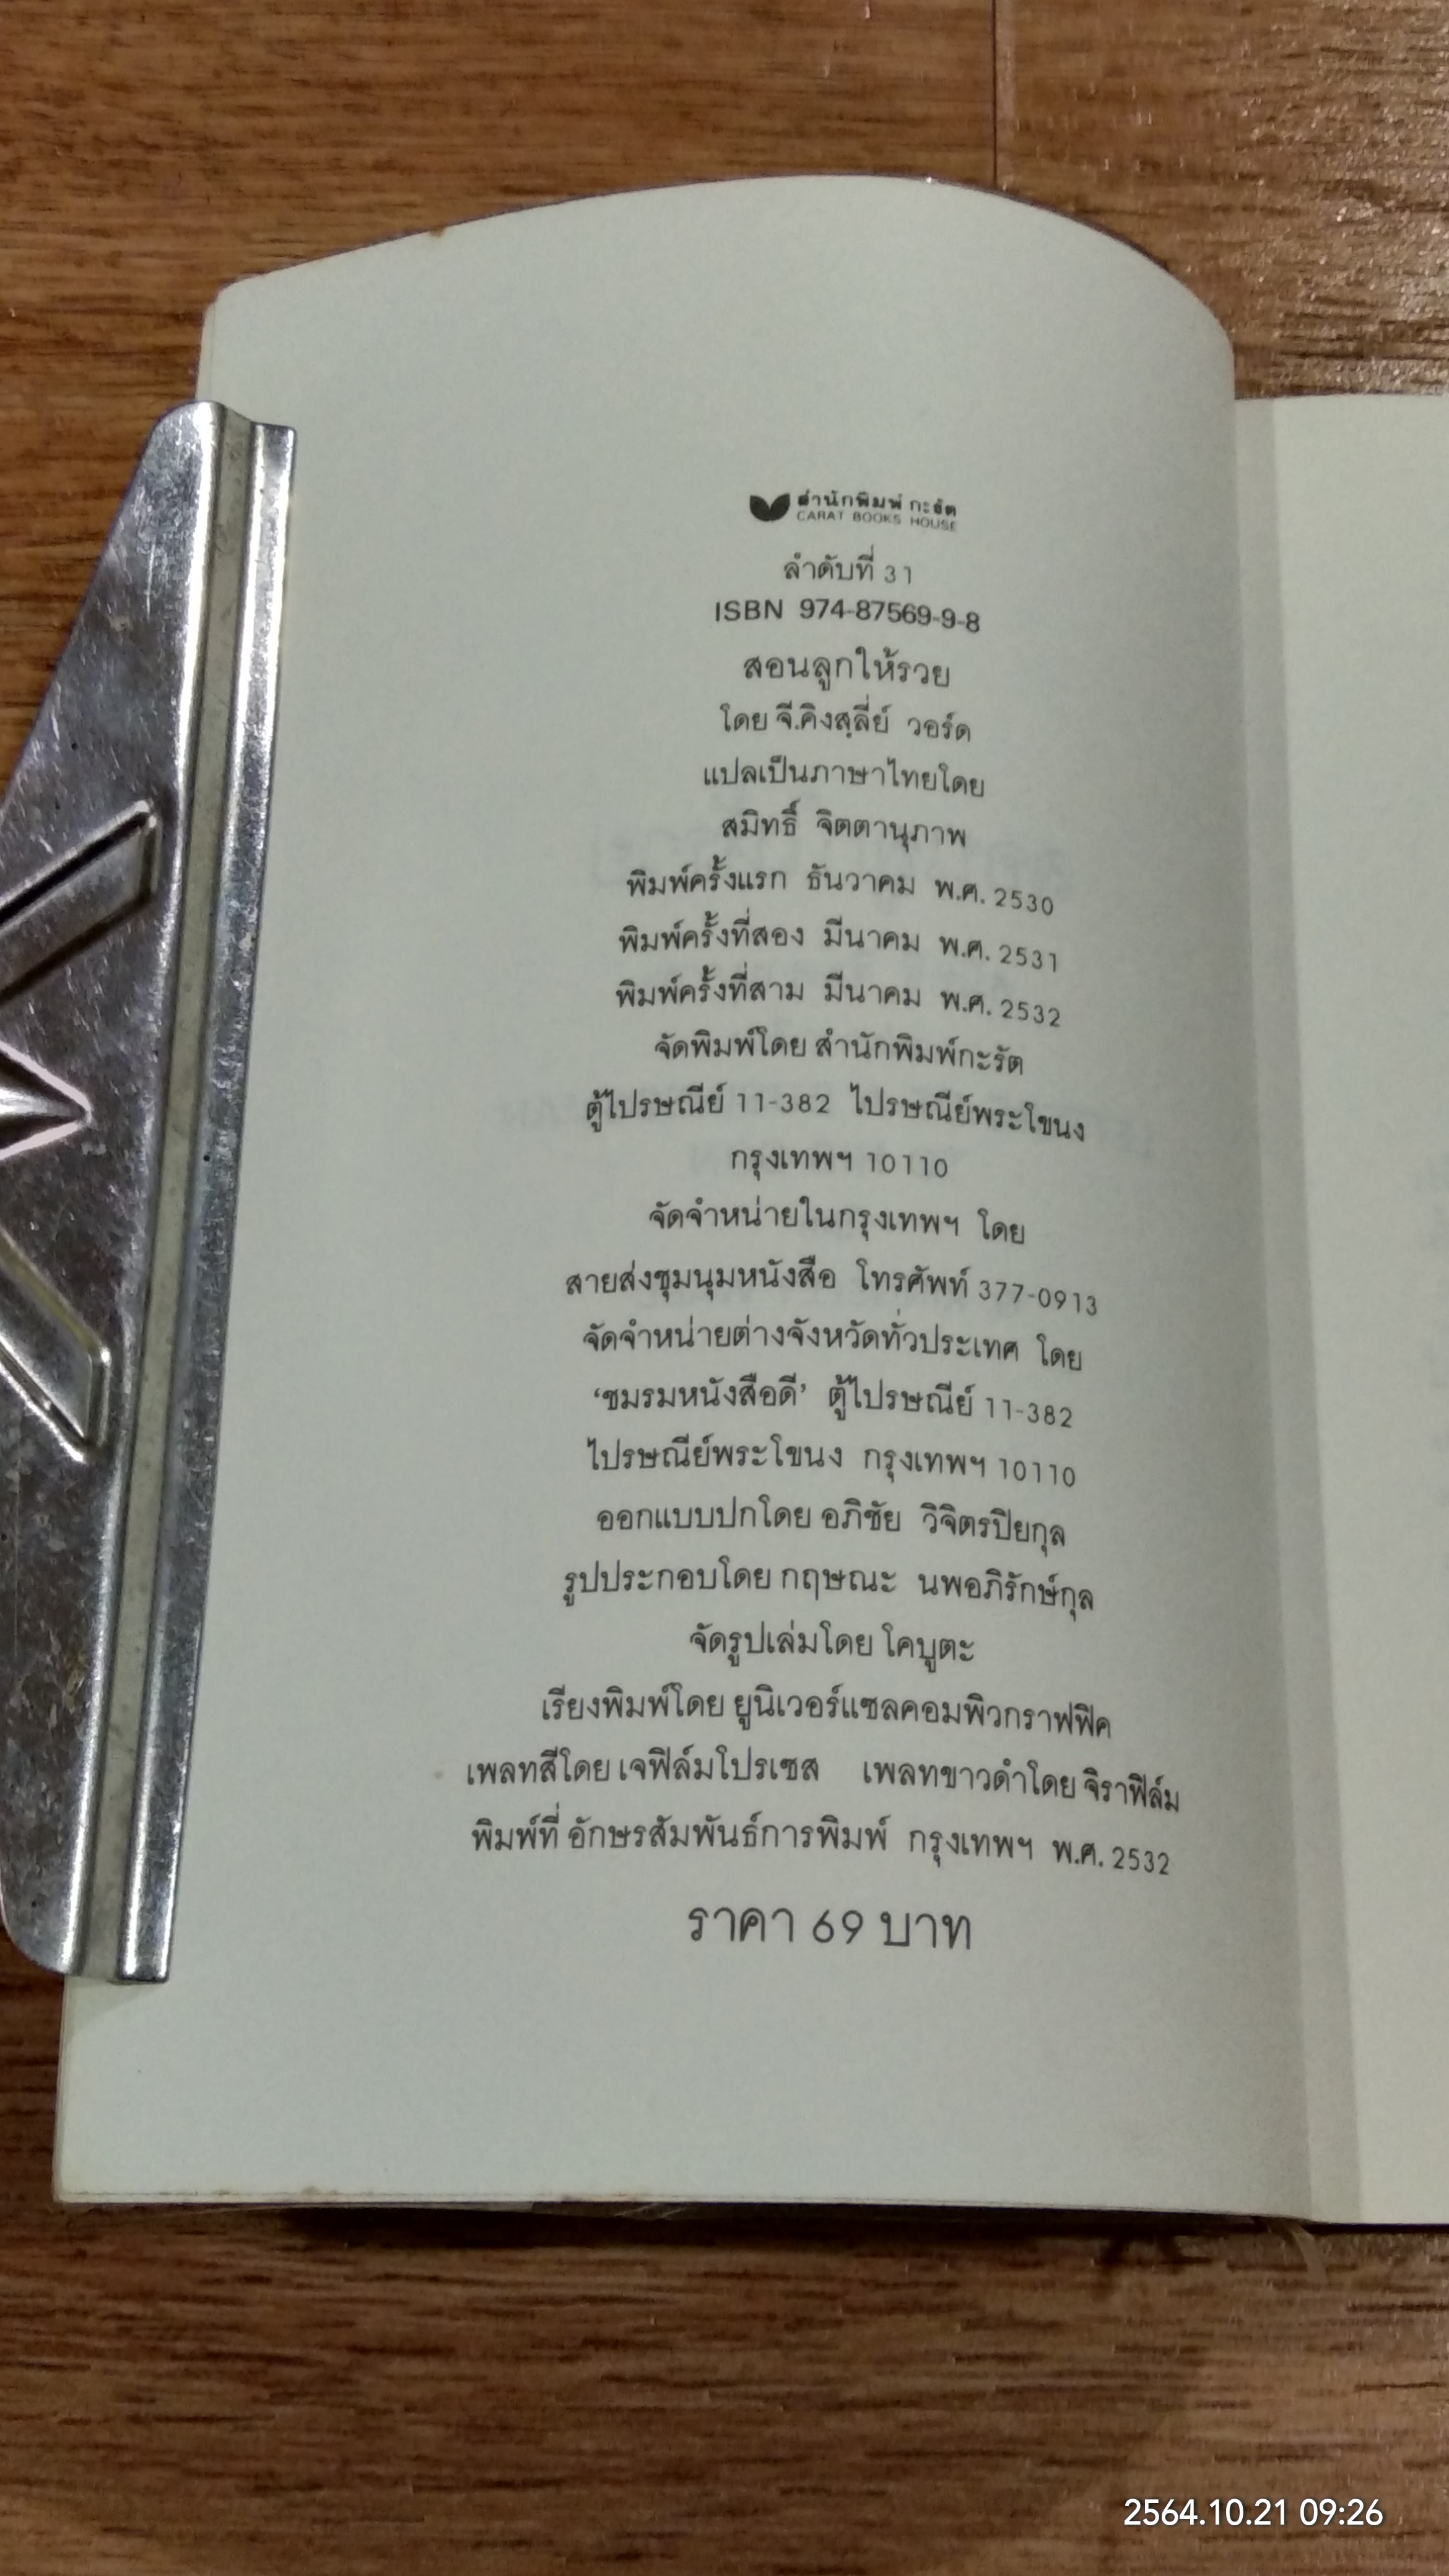 สำนักพิมพ์ กะรัต
CARAT BOOKS HOUSE
ลำดับที่ 31
ISBN 974-87569-9-8
สอนลูกให้รวย
โดย จี.คิงสฺลี่ย์ วอร์ด
แปลเป็นภาษาไทยโดย
สมิทธิ์ จิตตานุภาพ
พิมพ์ครั้งแรก ธันวาคม พ.ศ. 2530
พิมพ์ครั้งที่สอง มีนาคม พ.ศ. 2531
พิมพ์ครั้งที่สาม มีนาคม พ.ศ. 2532
จัดพิมพ์โดย สำนักพิมพ์กะรัต
ตู้ไปรษณีย์ 11-382 ไปรษณีย์พระโขนง
กรุงเทพฯ 10110
จัดจำหน่ายในกรุงเทพฯ โดย
สายส่งชุมนุมหนังสือ โทรศัพท์ 377-0913
จัดจำหน่ายต่างจังหวัดทั่วประเทศ โดย
‘ชมรมหนังสือดี’ ตู้ไปรษณีย์ 11-382
ไปรษณีย์พระโขนง กรุงเทพฯ 10110
ออกแบบปกโดย อภิชัย วิจิตรปิยกุล
รูปประกอบโดย กฤษณะ นพอภิรักษ์กุล
จัดรูปเล่มโดย โคบูตะ
เรียงพิมพ์โดย ยูนิเวอร์แซลคอมพิวกราฟฟิค
เพลทสีโดย เจฟิล์มโปรเซส เพลทขาวดำโดย จิราฟิล์ม
พิมพ์ที่ อักษรสัมพันธ์การพิมพ์ กรุงเทพฯ พ.ศ. 2532
ราคา 69 บาท
2564.10.21 09:26